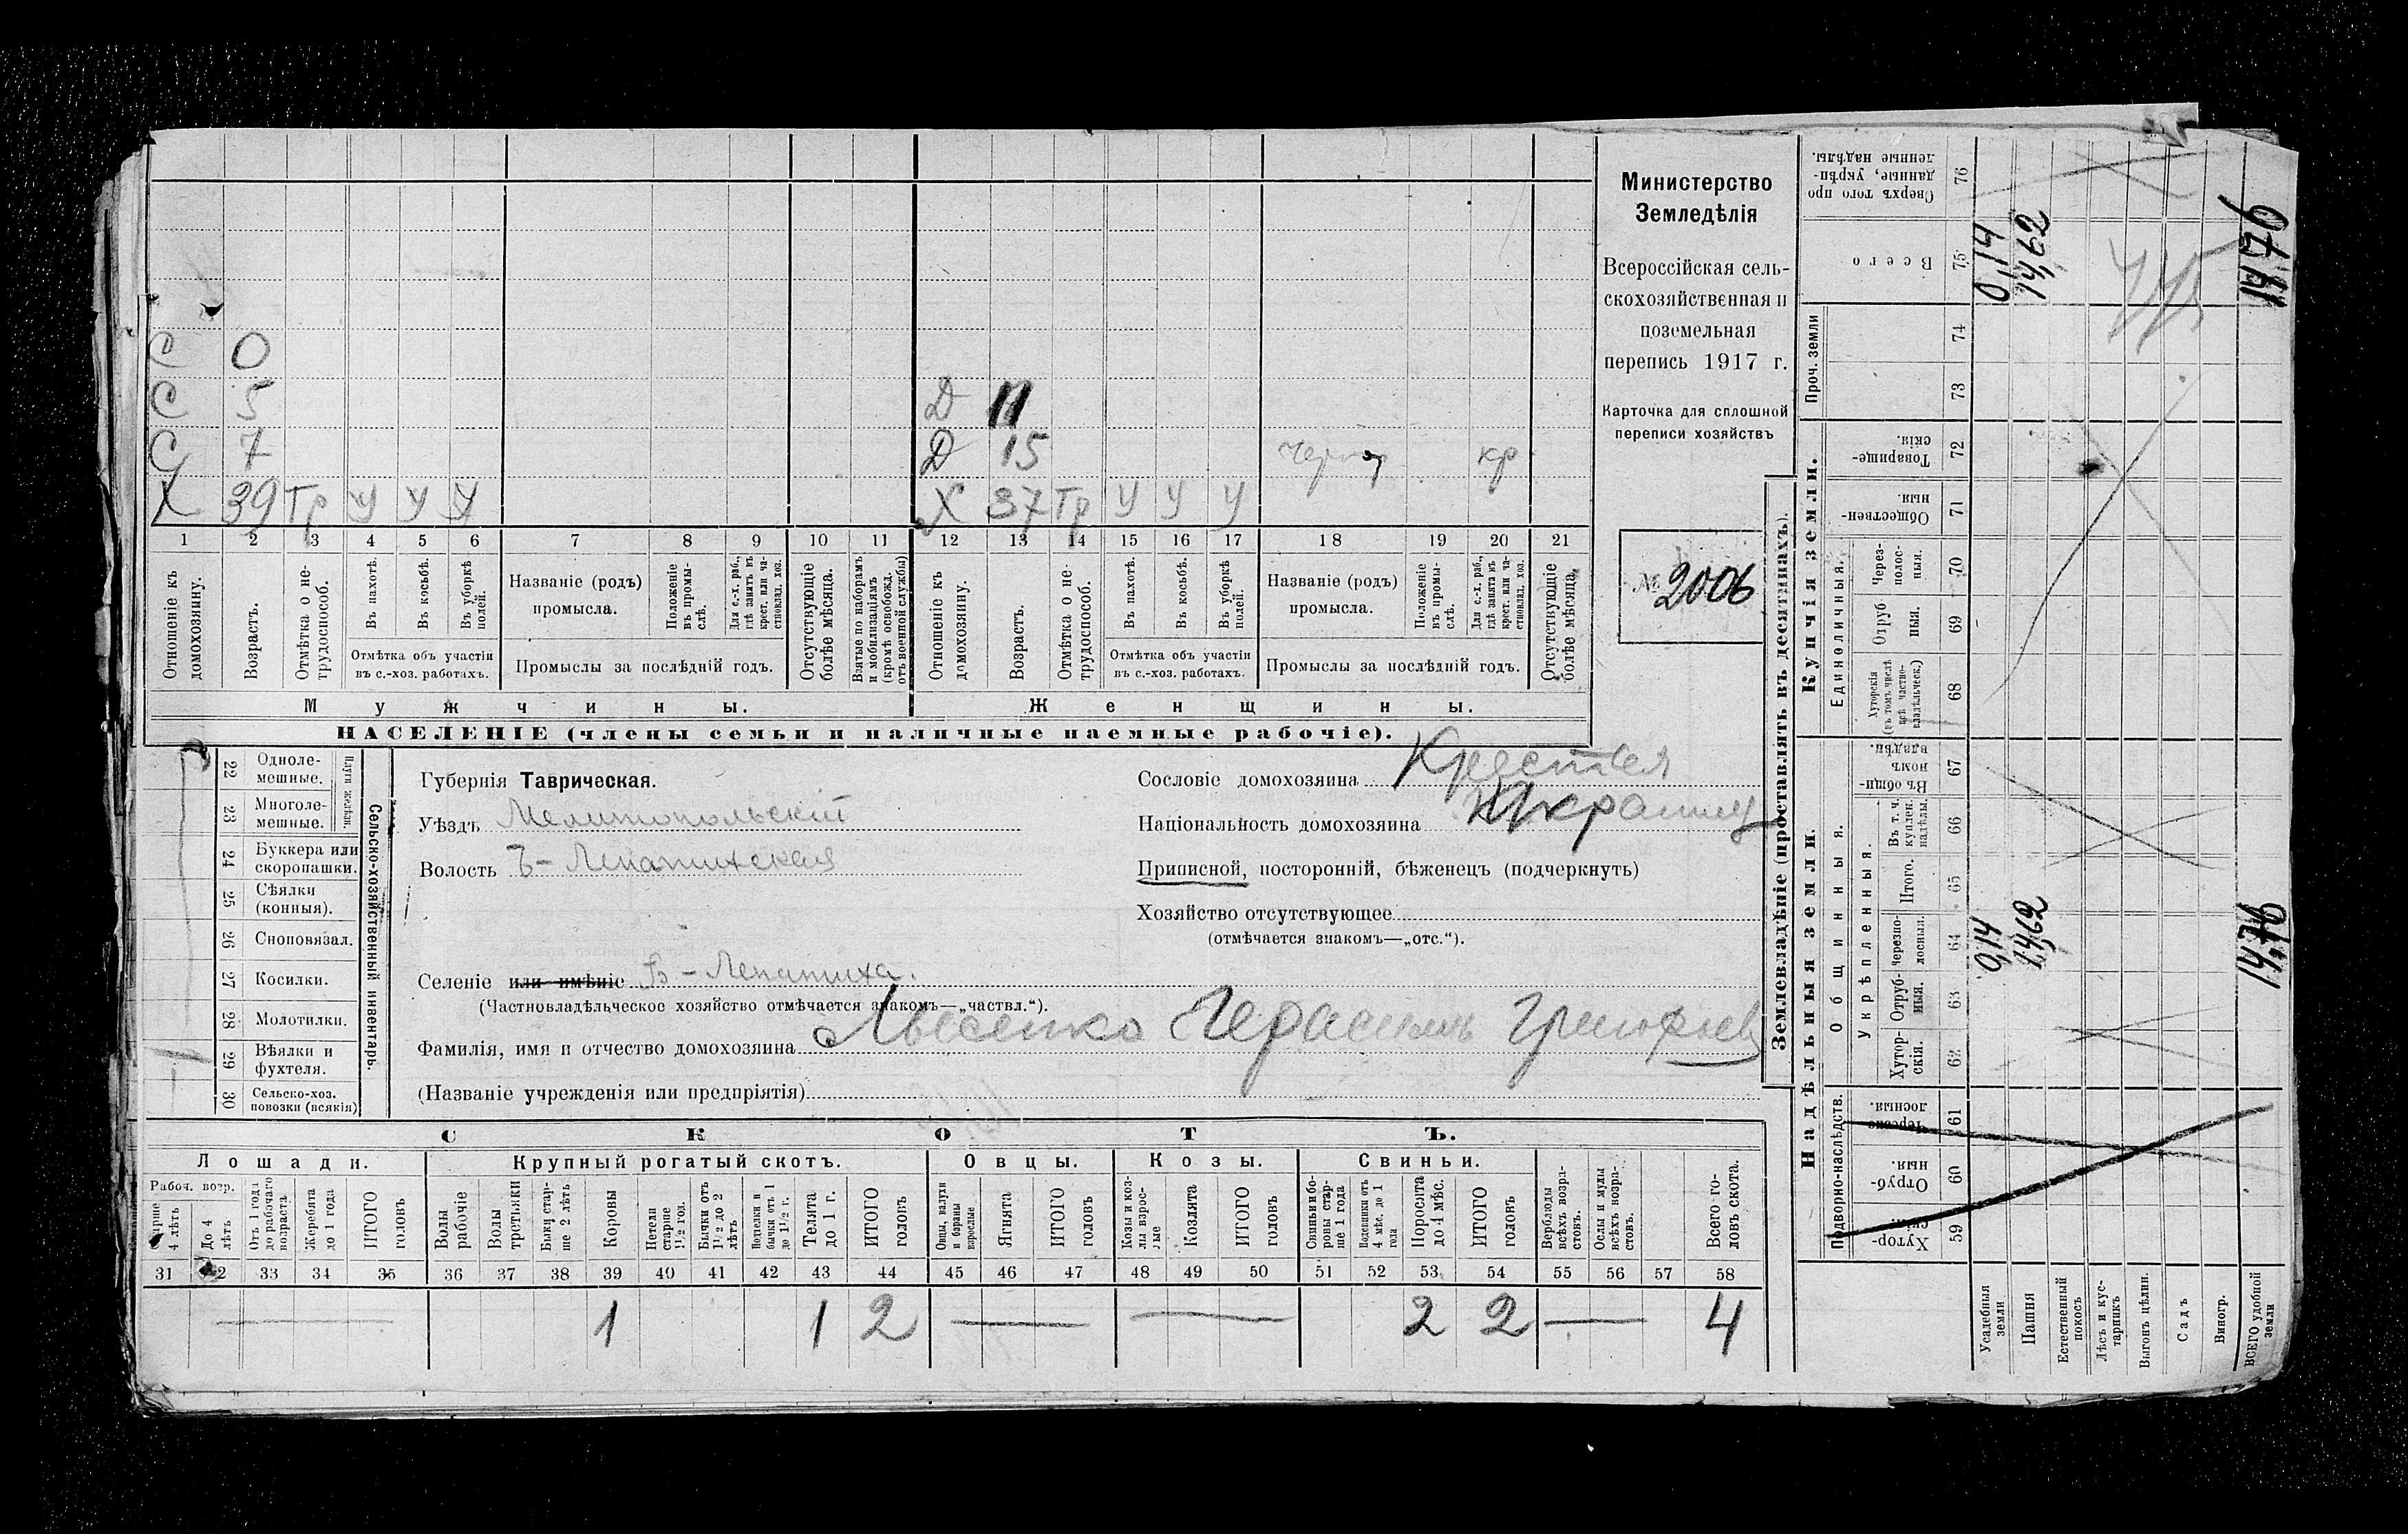 С 0
С 5 Д 11
С 7 Д 15 кр
Х 39 Тр У У У Х 37 Тр У У У
1 2 3 4 5 6 7 8 9 10 11 12 13 14 15 16 17 18 19 20 21
Отношеніе къ домохозяину.
Возрастъ.
Отмѣтка о не-
трудоспособ.
Въ пахотѣ.
Въ косьбѣ.
Въ уборкѣ
полей.
Отмѣтка объ участіи
въ с.-хоз. работахъ.
Названіе (родъ)
промысла.
Положеніе
въ промы-
слѣ.
Для с.-х. раб.,
гдѣ занятъ въ
крест. или ча-
стновлад. хоз.
Промыслы за послѣдній годъ.
Отсутствующіе
болѣе мѣсяца.
Взятые по наборамъ
и мобилизаціямъ
(кромѣ освобожд.
отъ военной службы)
Отношеніе къ
домохозяину.
Возрастъ.
Отмѣтка о не-
трудоспособ.
Въ пахотѣ.
Въ косьбѣ.
Въ уборкѣ
полей.
Отмѣтка объ участіи
въ с.-хоз. работахъ.
Названіе (родъ)
промысла.
Положеніе
въ промы-
слѣ.
Для с.-х. раб.,
гдѣ занята въ
крест. или ча-
стновлад. хоз.
Промыслы за послѣдній годъ.
Отсутствующіе
болѣе мѣсяца.
Мужчины. Женщины.
НАСЕЛЕНІЕ (члены семьи и наличные наемные рабочіе).
Министерство
Земледѣлія
Всероссійская сель-
скохозяйственная и
поземельная
перепись 1917 г.
Карточка для сплошной
переписи хозяйствъ
№ 2006
22 Одноле-
мешные.
23 Многоле-
мешные.
Плуги желѣзн.
24 Буккера или
скоропашки.
25 Сѣялки
(конныя).
26 Сноповязал.
27 Косилки.
28 Молотилки.
29 Вѣялки и
фухтеля.
30 Сельско-хоз.
повозки (всякія)
Сельско-хозяйственный инвентарь.
Губернія Таврическая.
Уѣздъ Мелитопольскій
Волость Б-Лепатихская
Селеніе или имѣніе Б-Лепатиха.
(Частновладѣльческое хозяйство отмѣчается знакомъ—„частвл.“).
Фамилія, имя и отчество домохозяина Лысенко Герасимъ Григорьев
(Названіе учрежденія или предпріятія)
Сословіе домохозяина Крестья
Національность домохозяина Украинец
Приписной, посторонній, бѣженецъ (подчеркнуть)
Хозяйство отсутствующее
(отмѣчается знакомъ—„отс.“).
СКОТЪ.
Лошади. Крупный рогатый скотъ. Овцы. Козы. Свиньи.
Рабоч. возр.
Старше
4 лѣтъ
До 4
лѣтъ
Отъ 1 года
до рабочаго
возраста
Жеребята
до 1 года
ИТОГО
головъ
Волы
рабочіе
Волы
третьяки
Быки стар-
ше 2 лѣтъ
Коровы
Нетели
старше
1½ год.
Бычки отъ
1½ до 2
лѣтъ
Подтелки и
бычки отъ 1
до 1½ г.
Телята
до 1 г.
ИТОГО
головъ
Овцы, валухи
и бараны
взрослые
Ягнята
ИТОГО
головъ
Козы и коз-
лы взрос-
лые
Козлята
ИТОГО
головъ
Свиньи и бо-
ровы стар-
ше 1 года
Подсвинки отъ
4 мѣс. до 1
года
Поросята
до 4 мѣс.
ИТОГО
головъ
Верблюды
всѣхъ возра-
стовъ.
Ослы и мулы
всѣхъ возра-
стовъ.
Всего го-
ловъ скота.
31 32 33 34 35 36 37 38 39 40 41 42 43 44 45 46 47 48 49 50 51 52 53 54 55 56 57 58
1 1 2 2 2 4
Землевладѣніе (проставлять въ десятинахъ).
Надѣльныя земли. Купчія земли.
Подворно-наслѣдств.
Общинныя.
Укрѣпленныя.
Единоличныя.
Проч. земли
Хутор-
скія. 59
Отруб-
ныя. 60
Черезпо-
лосныя. 61
Хутор-
скія. 62
Отруб-
ныя. 63
Черезпо-
лосныя. 64
Итого. 65
Въ т. ч.
куплен.
надѣлы. 66
Въ общин-
номъ
владѣн. 67
Хуторскія
(въ томъ числѣ
всѣ частно-
владѣльческ.) 68
Отруб
ныя. 69
Через-
полос-
ныя. 70
Обществен-
ныя. 71
Товарище-
скія. 72
73
74
Всего 75
Сверхъ того про
данные, укрѣп-
ленные надѣлы. 76
Усадебныя
земли 0,14 0,14
Пашня 14,62 14,62
Естественный
покосъ
Лѣсъ и кус-
тарникъ
Выгонъ цѣлин.
Садъ
Виногр.
ВСЕГО удобной
земли 14,76 14,76